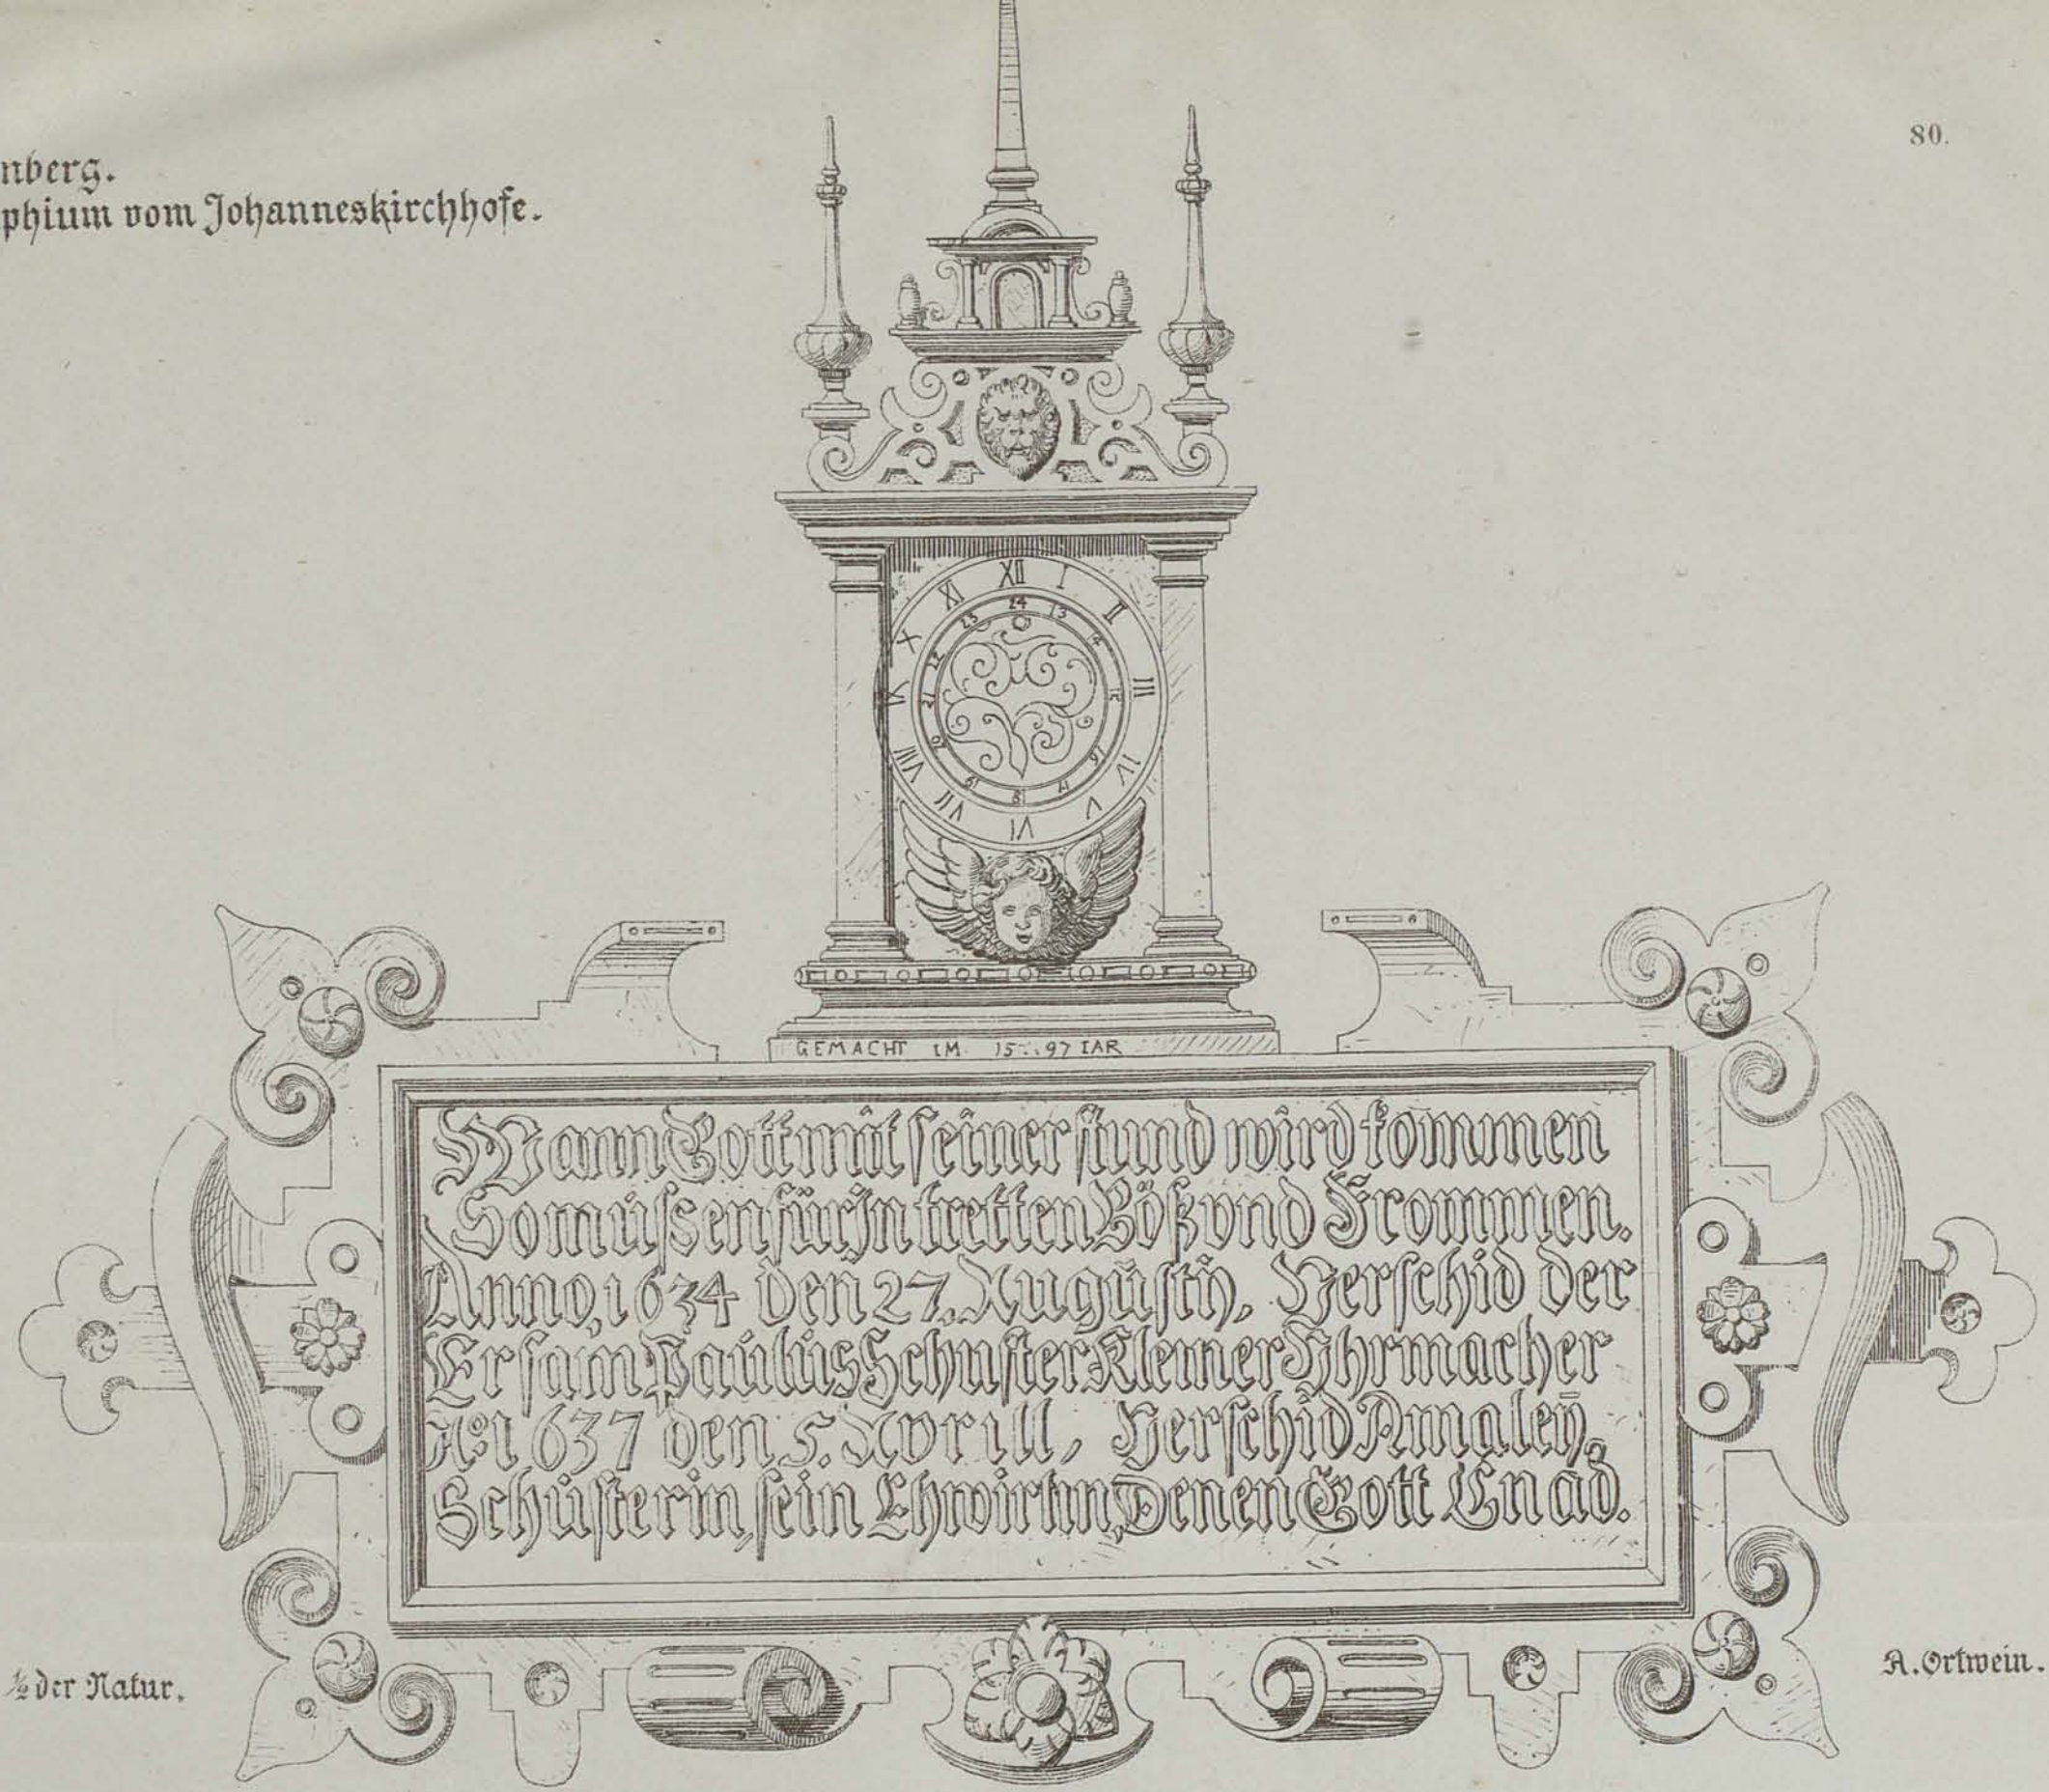 80.
nberg.
phium vom Johanneskirchhofe.
XII I II III IV V VI VII VIII IX X XI
24 13 14 15 16 17 18 19 20 21 23
GEMACHT IM 15..97 IAR
Wann Gott mit seiner stund wird kommen
So müssen für Jn tretten Böß vnd Frommen.
Anno, 1634 den 27. Augustÿ. Verschid der
Ersam Paulus Schuster Kleiner Vhrmacher
Ao 1637 den 5. Apprill, Verschid Amaleÿ
Schusterin, sein Ehwirtin, Denen Gott Gnad.
½ der Natur.
A. Ortwein.